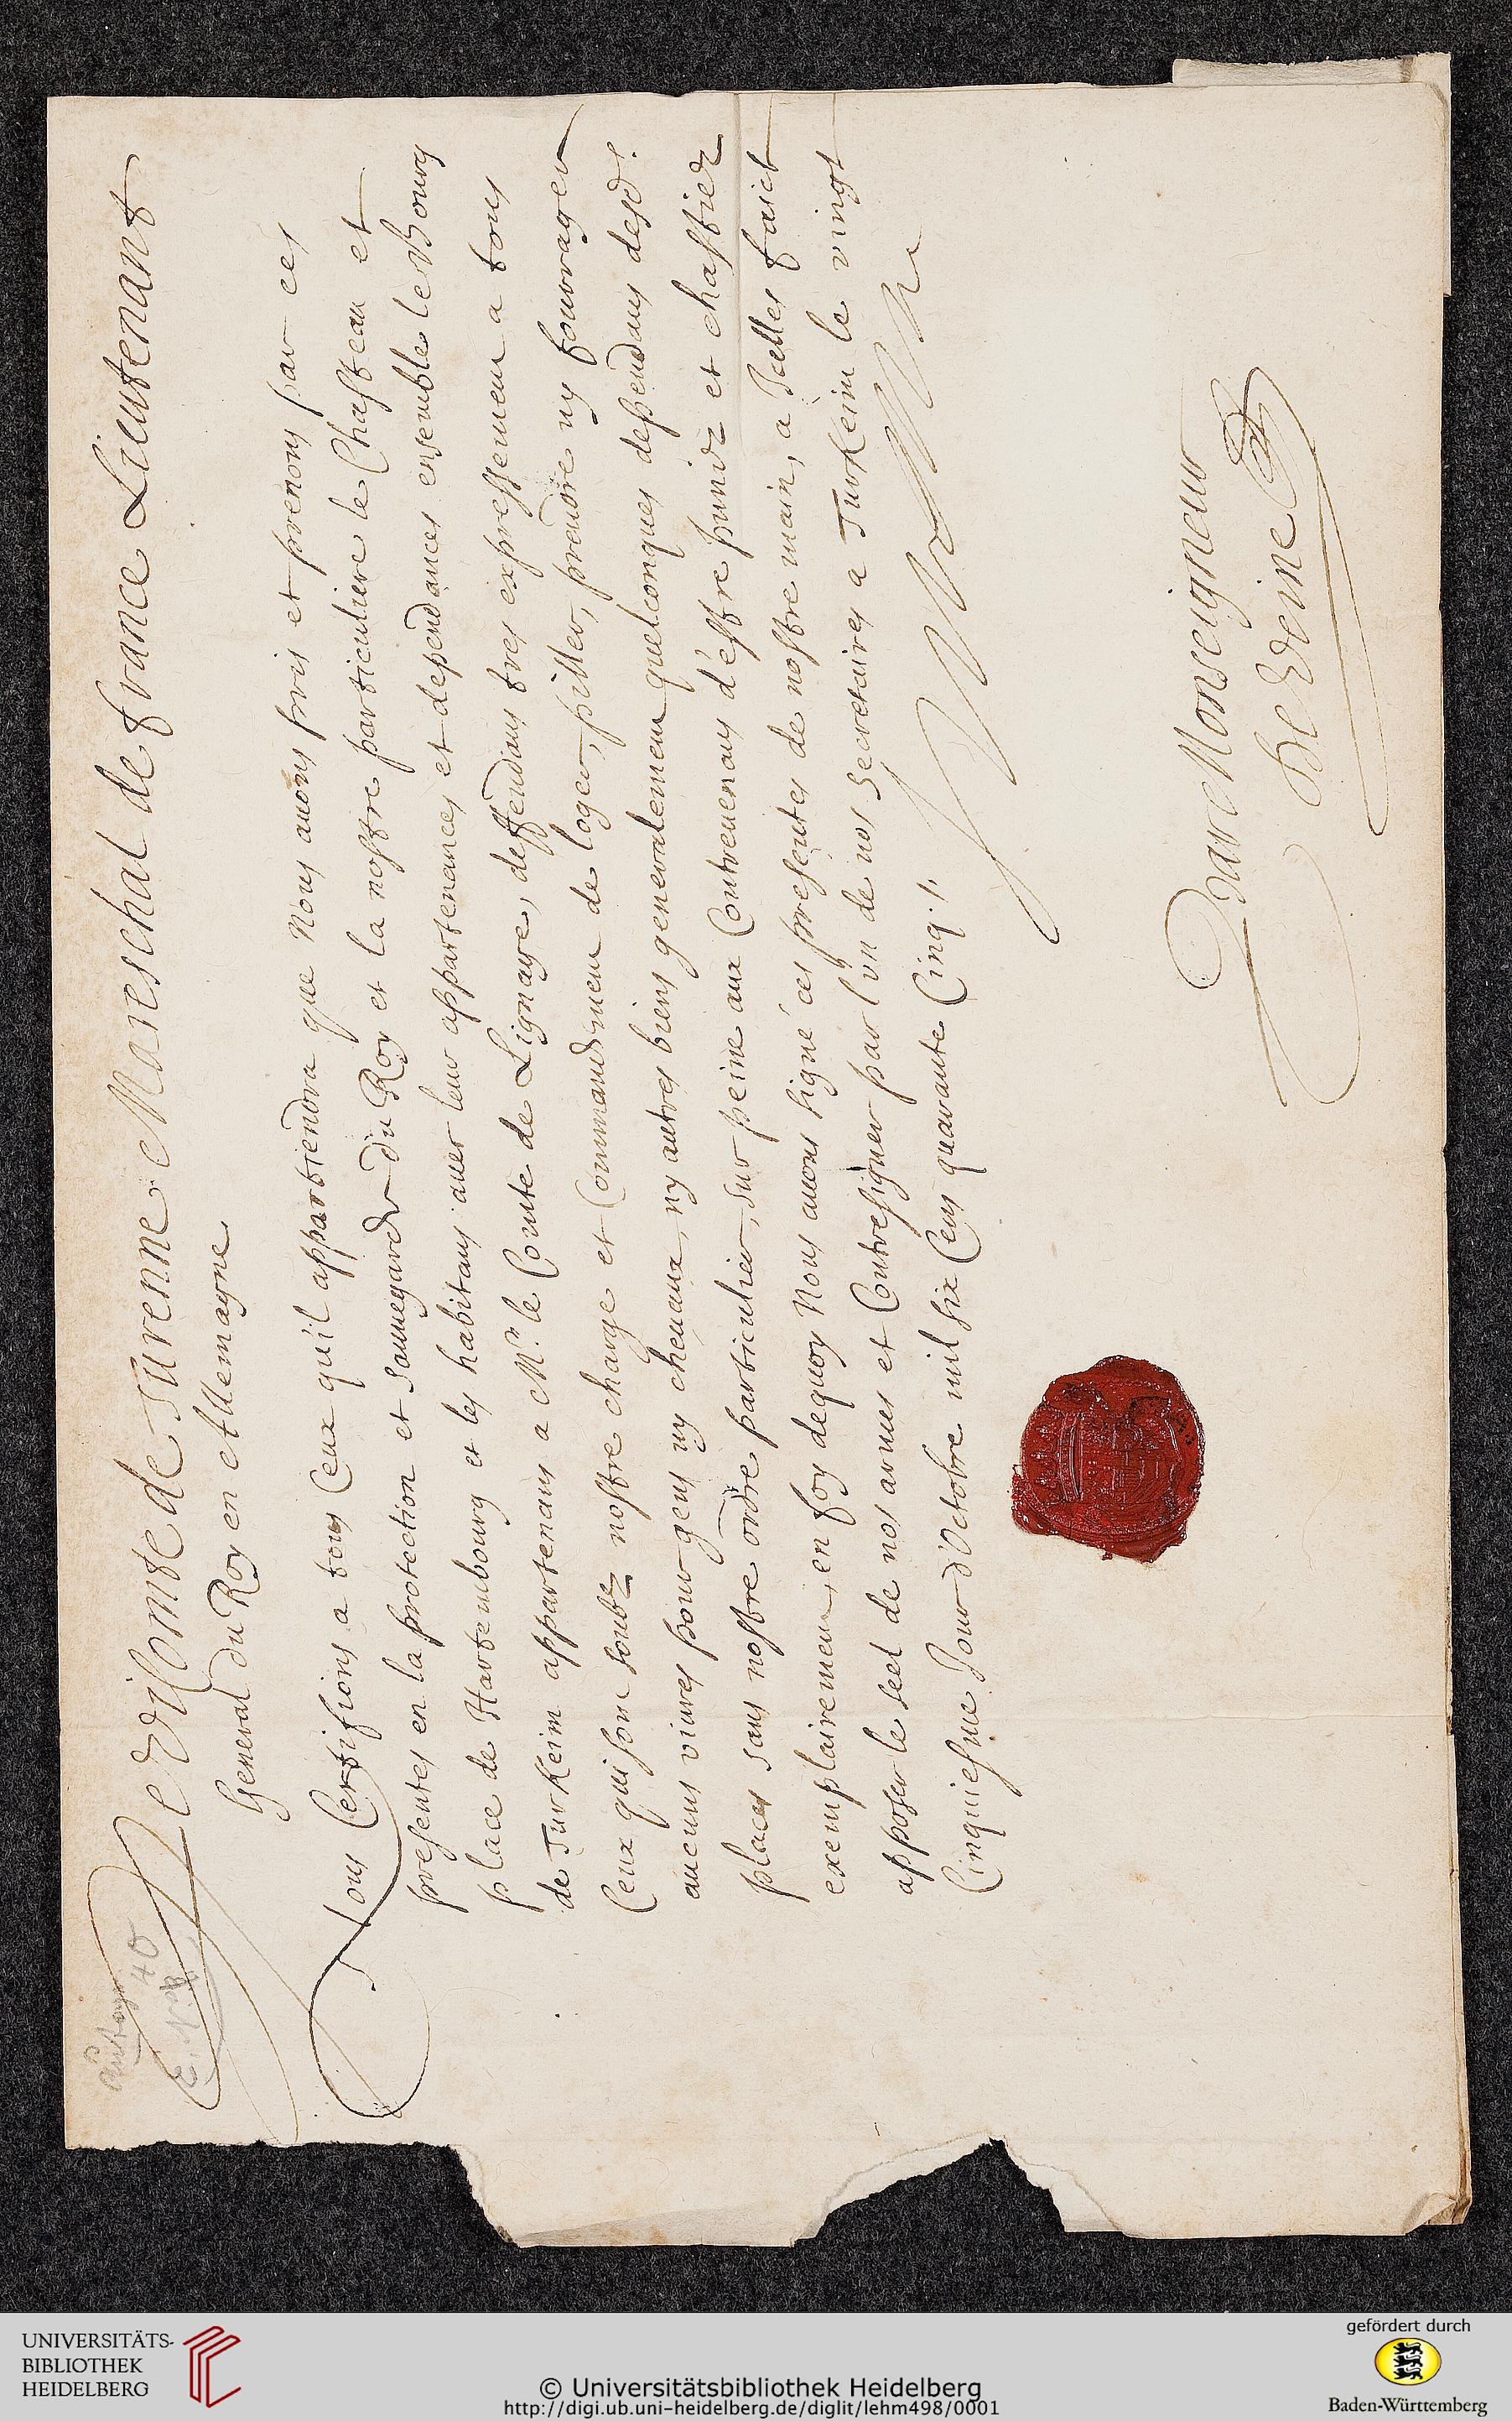 Le Visconte de Turenne Mareschal de france Lieutenant
General du Roy en Allemagne
Nous Certifions a tous Ceux qu'il appartiendra que Nous auons pris et prenons par ces
presentes en la protection et sauuegarde du Roy et la nostre particuliere le Chasteau et
place de Hartembourg et les habitans auec leur appartenances et dependances ensemble le Bourg
de Turkeim appartenans a Mr. le Comte de Lignage, deffendans tres expressement a tous
Ceux qui sont soubz nostre charge et Commandement de loger, piller, prendre ny fourrager
aucuns viures pour gens ny cheuaux, ny autres biens generalement quelconques dependans desd.
places sans nostre ordre particulier, sur peine aux Contreuenans d'estre punidz et chastiedz
exemplairement, en foy dequoy Nous auons signé ces presentes de nostre main, a Icelles faict
apposer le seel de nos armes et Contresigner par l'vn de nos Secretaires a Turkeim le vingt
Cinquiesme Jour d'Octobre mil six Cens quarante Cinq ./.
Par Monseigneur
Autogr.
40
UNIVERSITÄTS-
BIBLIOTHEK
HEIDELBERG
© Universitätsbibliothek Heidelberg
http://digi.ub.uni-heidelberg.de/diglit/lehm498/0001
gefördert durch
Baden-Württemberg